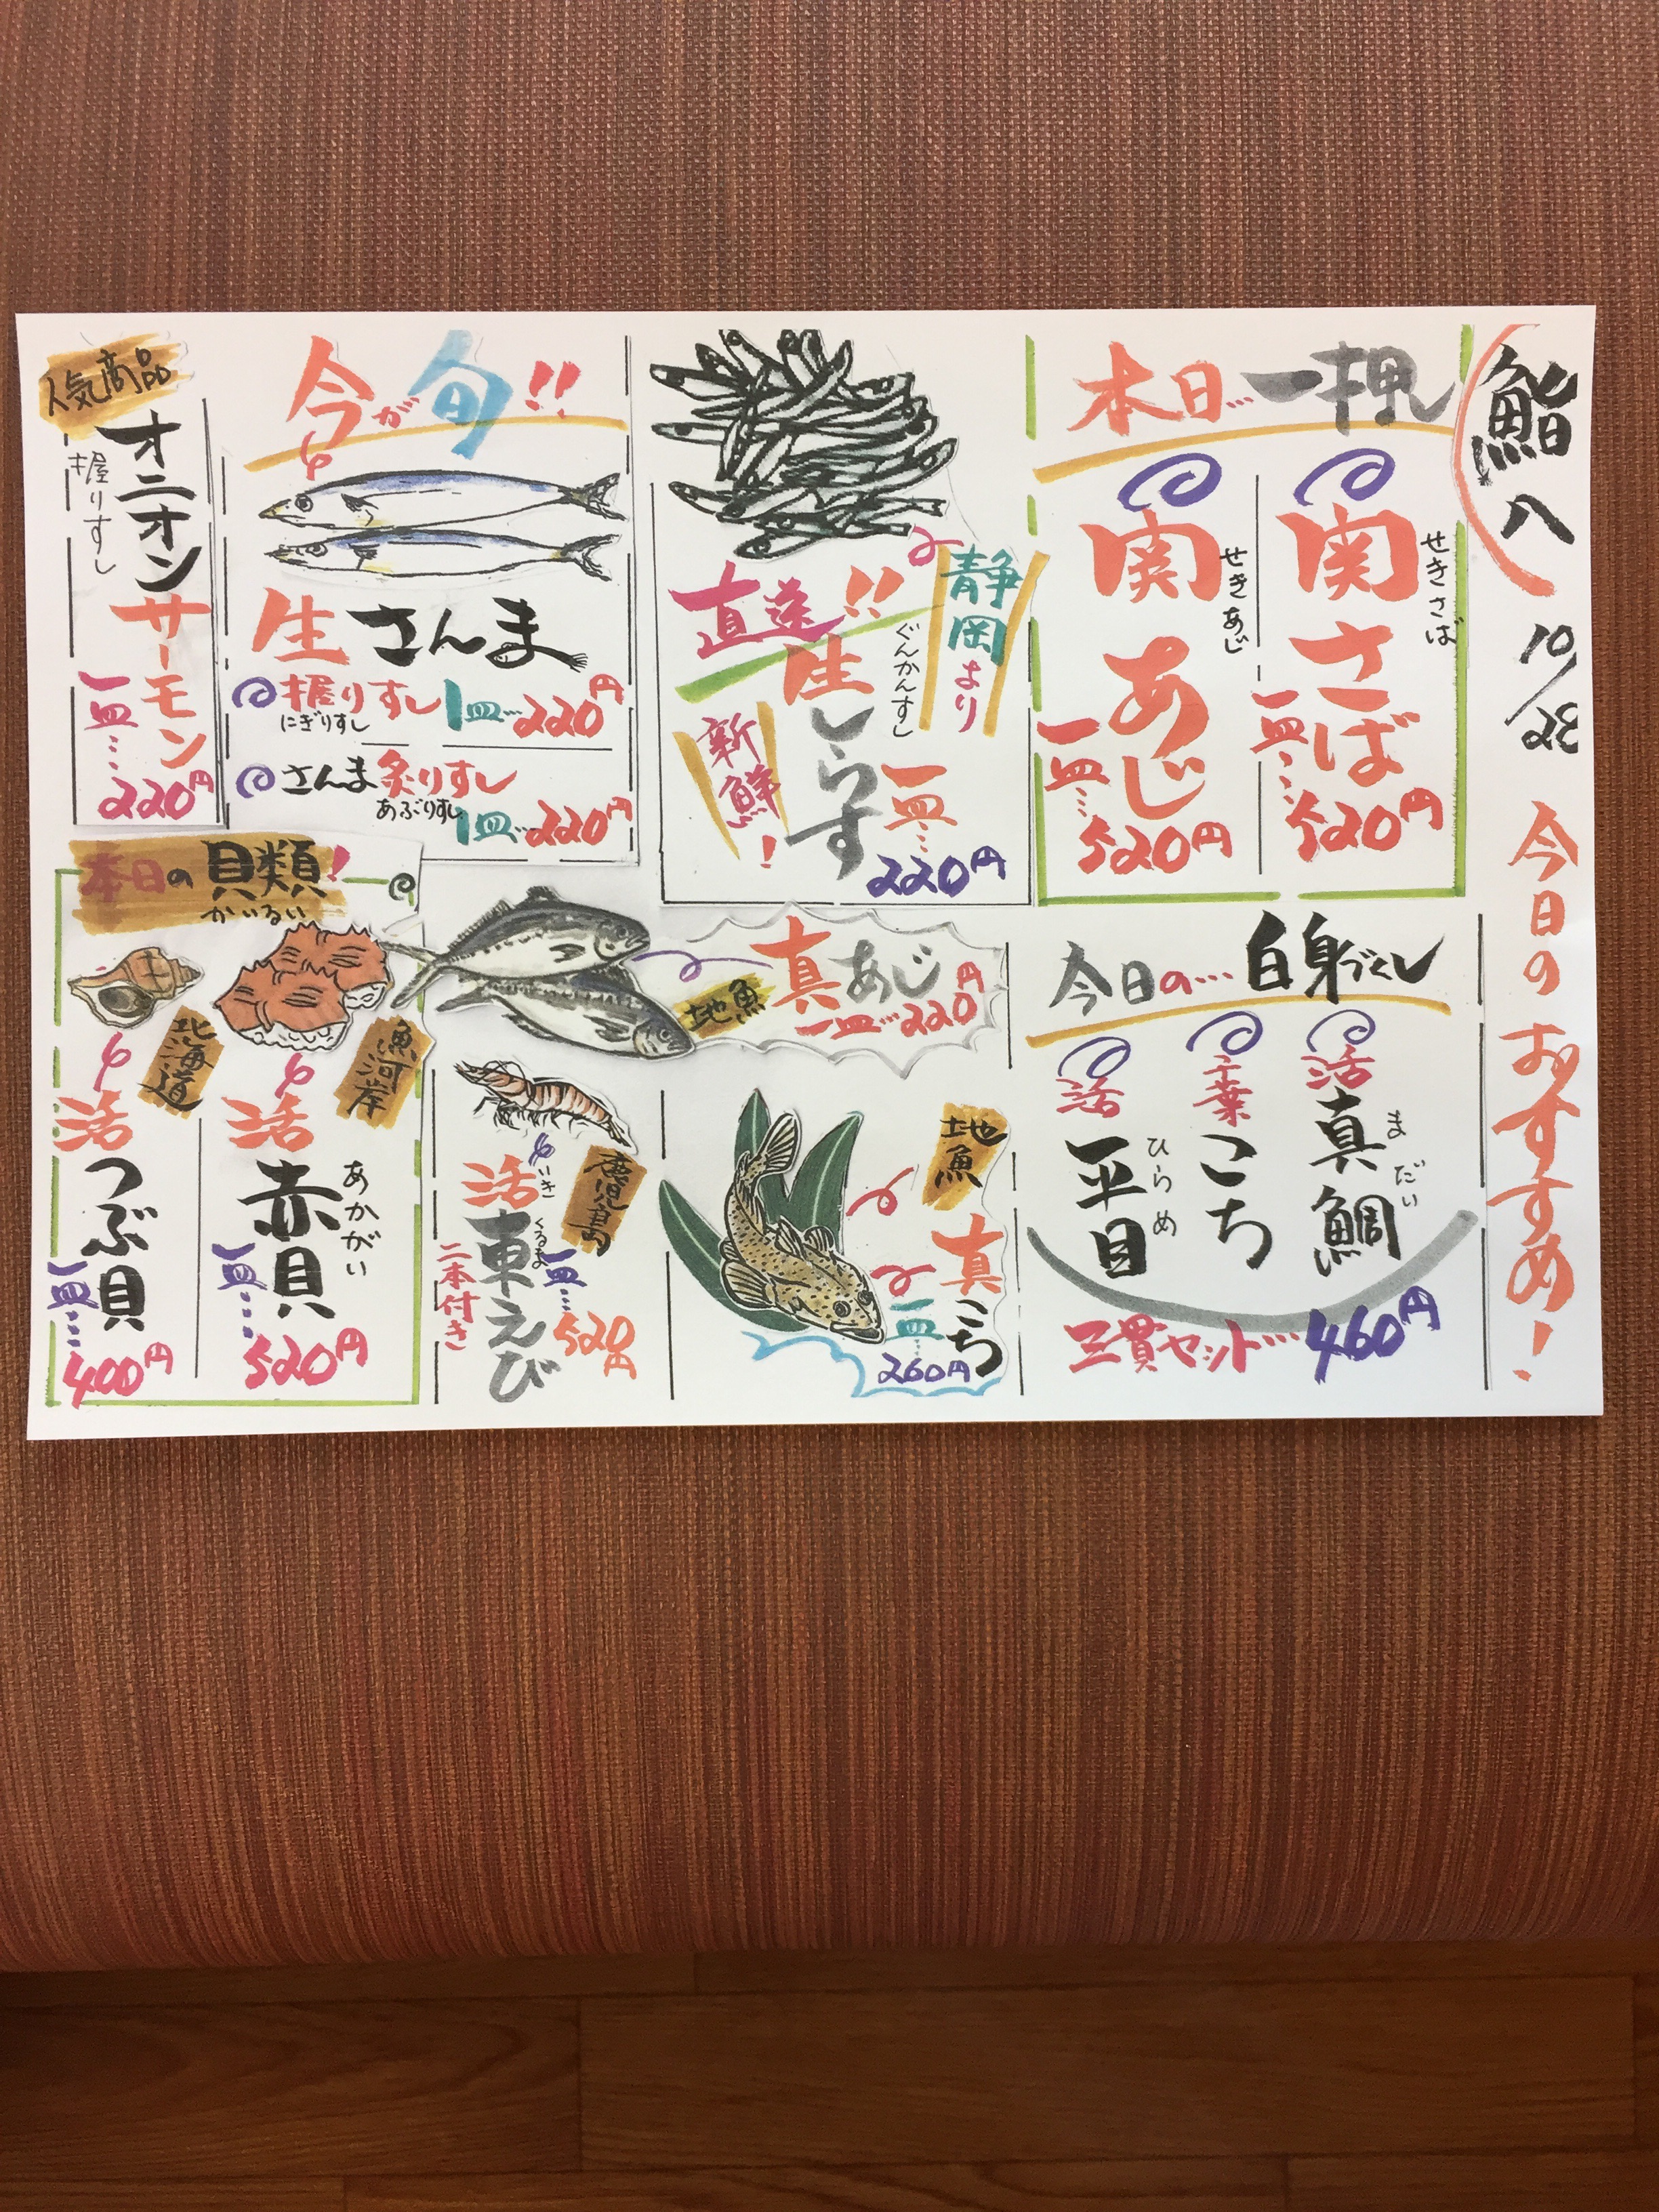 鮨八
10/28
今日のおすすめ!
本日…一押し
関さば
せきさば
一皿…520円
関あじ
せきあじ
一皿…520円
静岡より
直送!!
生しらす
ぐんかんずし
新鮮!
一皿…220円
今が旬!!
生さんま
握りすし
にぎりすし
1皿…220円
さんま炙りすし
あぶりすし
1皿…220円
人気商品
オニオンサーモン
握りすし
一皿…220円
今日の…白身づくし
活真鯛
まだい
千葉こち
活平目
ひらめ
三貫セット…460円
真あじ
地魚
一皿…220円
地魚
真こち
一皿…260円
鹿児島
活車えび
いきくるま
二本付き
一皿…520円
本日の貝類!
かいるい
魚河岸
活赤貝
あかがい
一皿…520円
北海道
活つぶ貝
一皿…400円